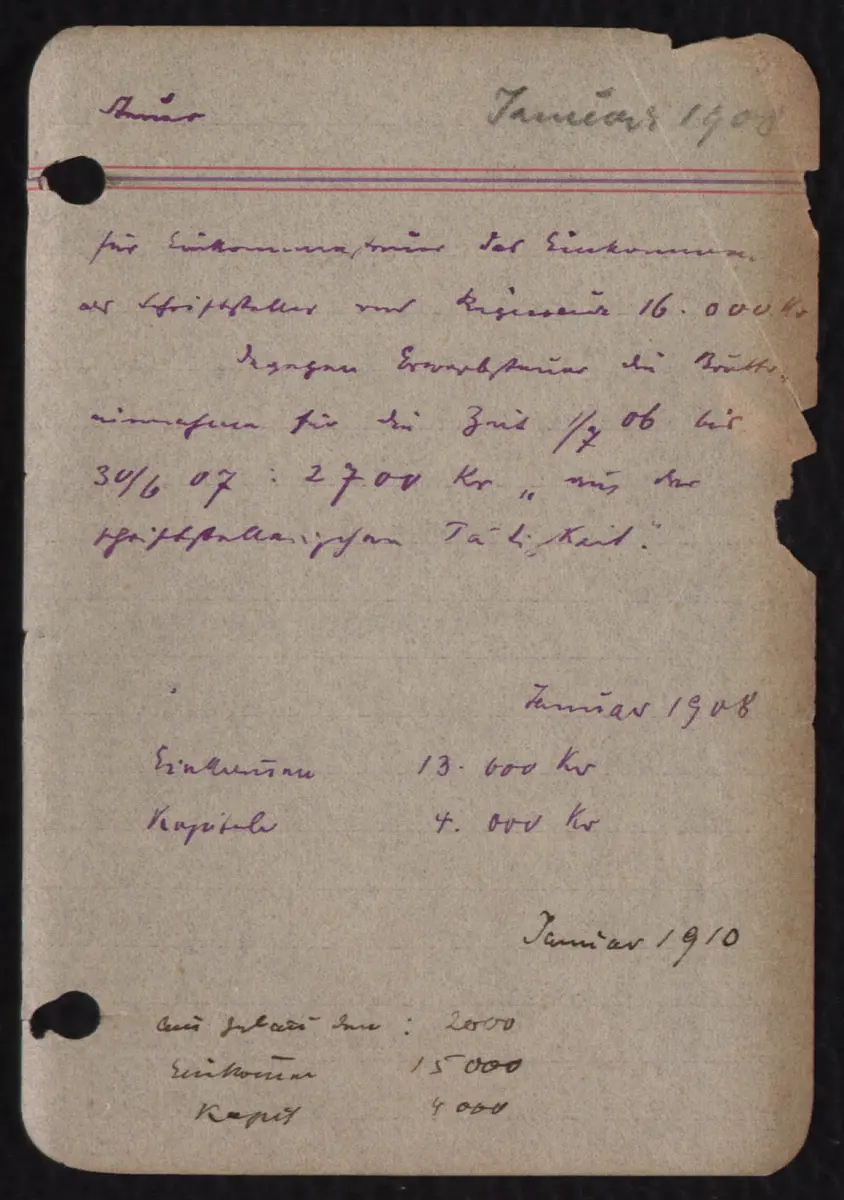 Steuer Januar 1908
für Einkommensteuer das Einkommen
als Schriftsteller und Regisseur 16.000 Kr
dagegen Erwerbsteuer die Brutto-
einnahmen für die Zeit 1/7 06 bis
30/6 07 : 2700 Kr „aus der
schriftstellerischen Tätigkeit."
Januar 1908
Einkommen 13.000 Kr
Kapitale 4.000 Kr
Januar 1910
aus : 2000
Einkommen 15000
Kapit 4000